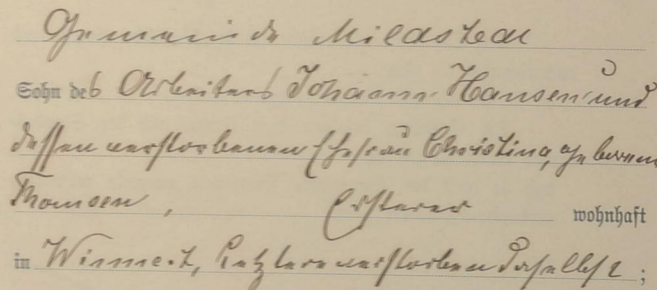 Gemeinde Mildstedt
Sohn des Arbeiters Johann Hansen und
dessen verstorbenen Ehefrau Christina, geborene
Thomsen, Ersterer wohnhaft
in Winnert, Letztere verstorben daselbst;